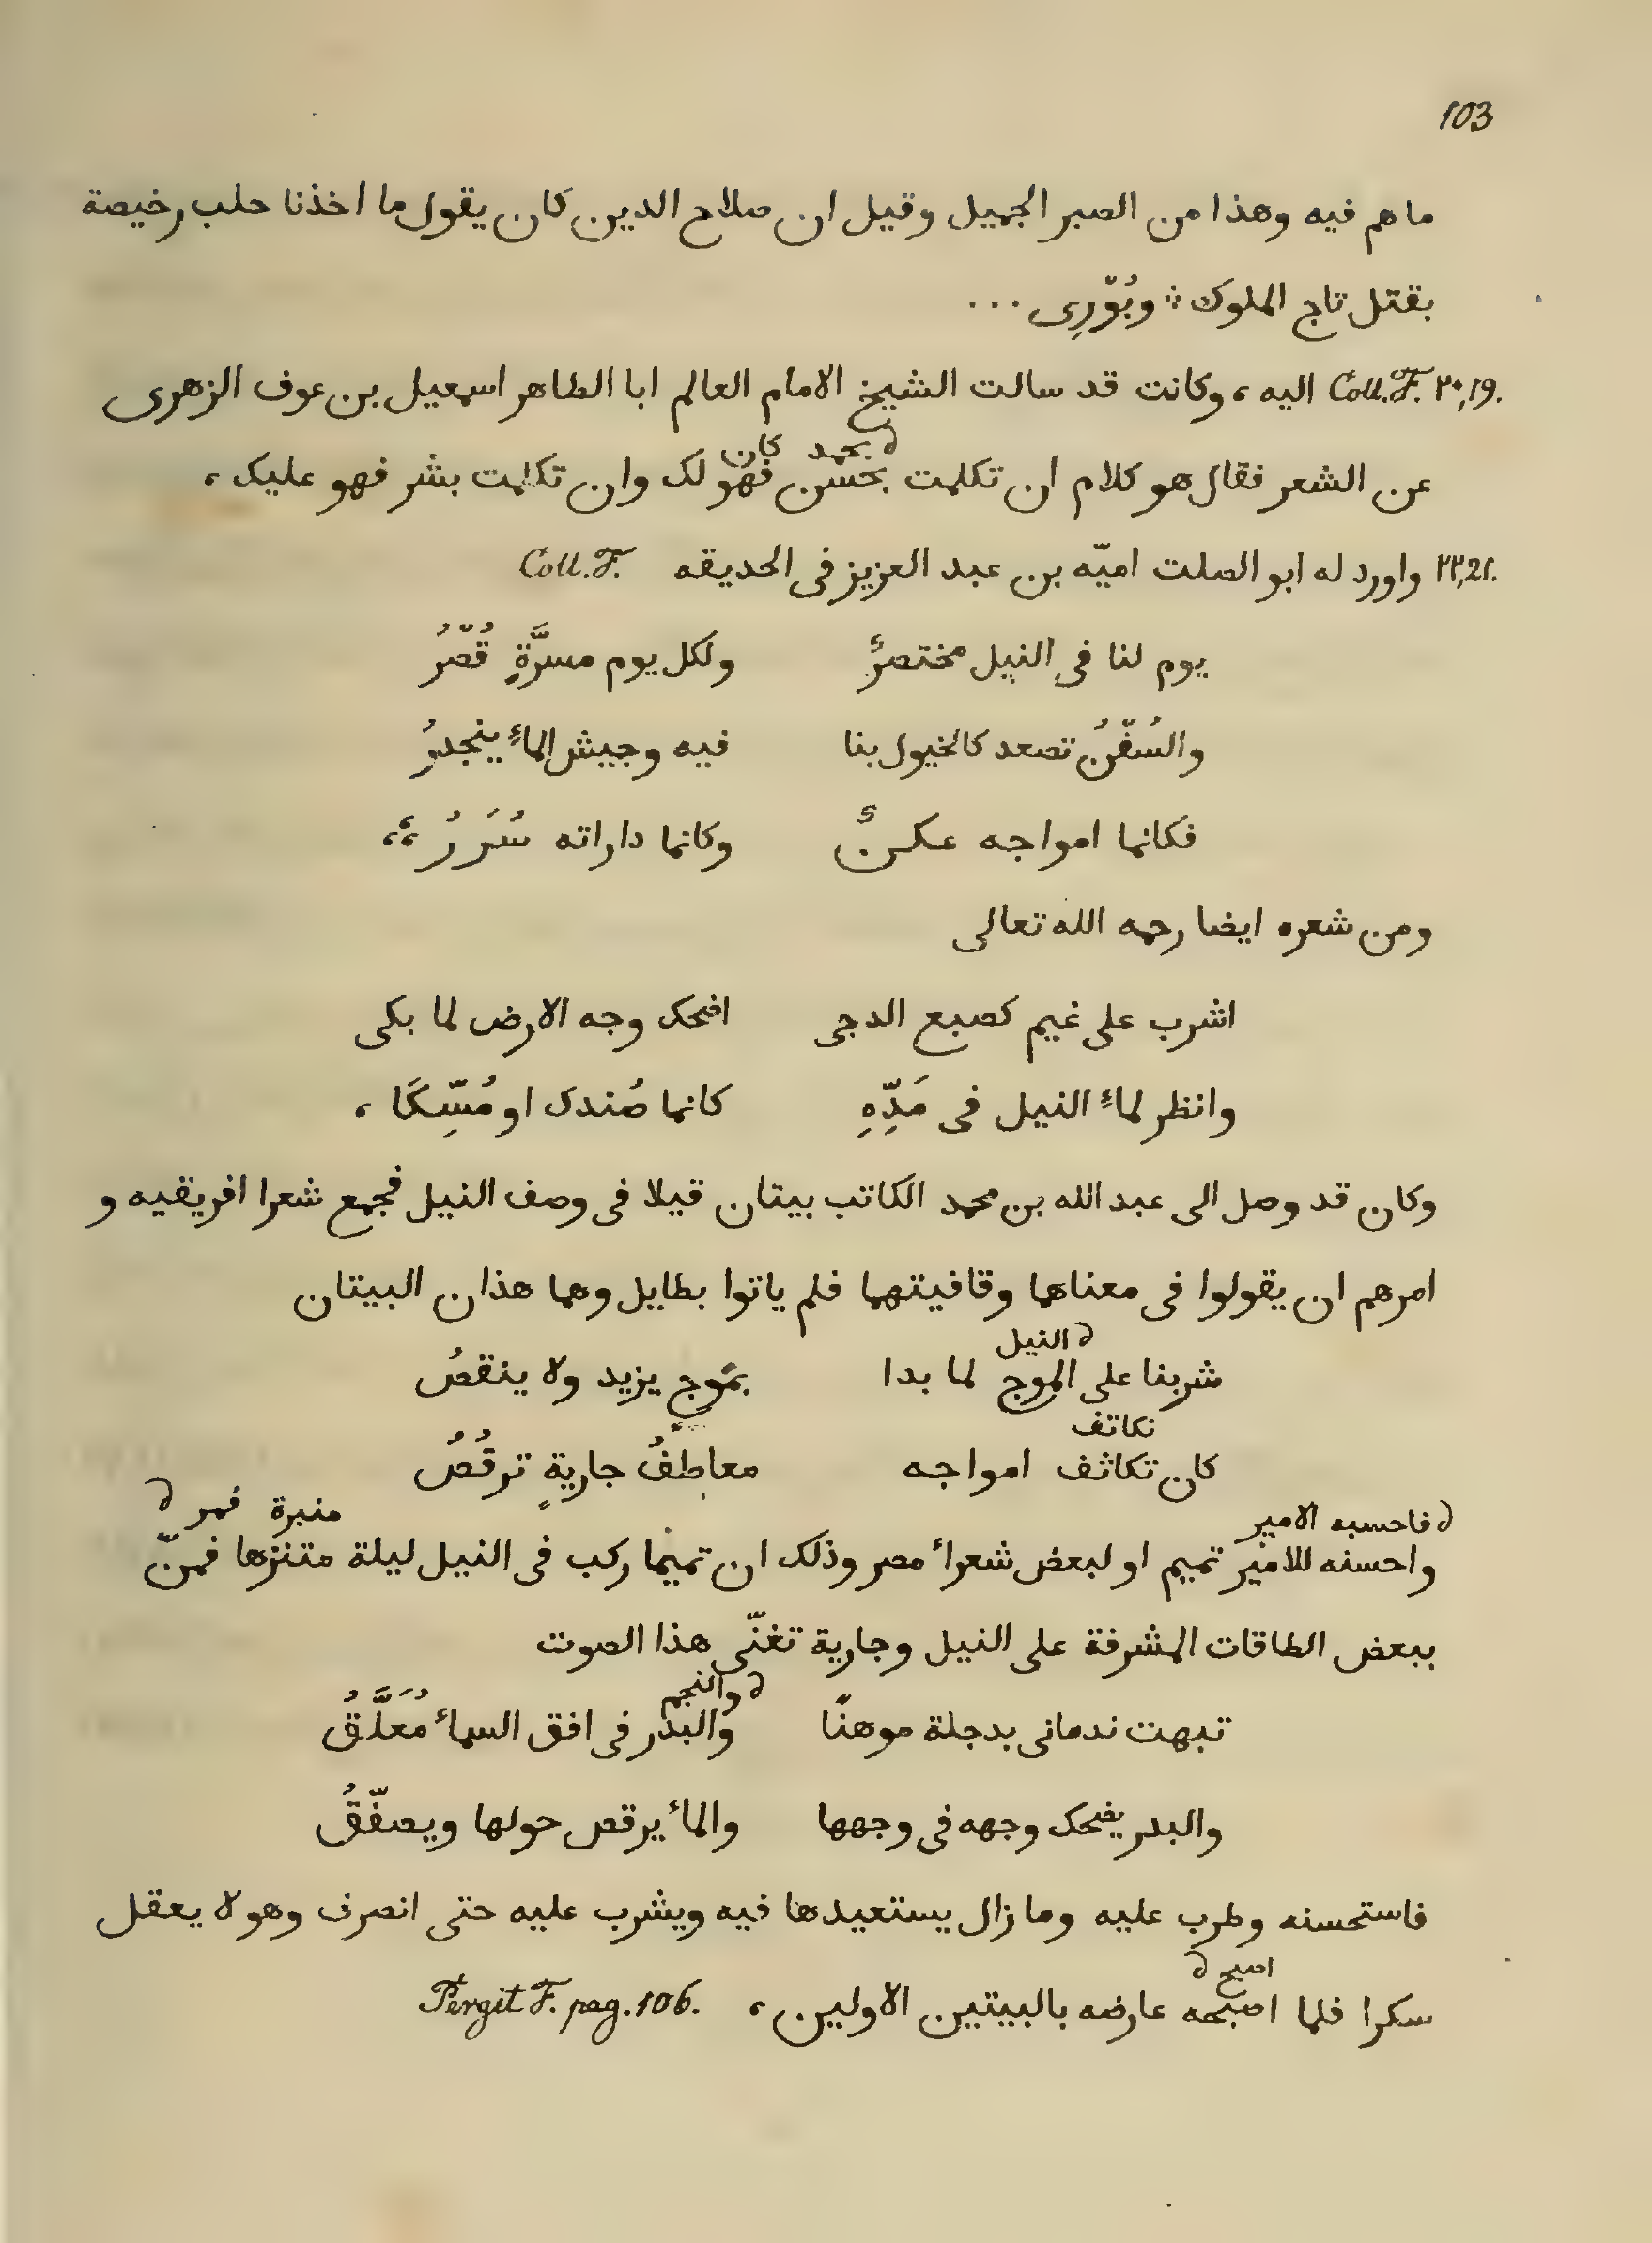 103
ما هم فيه وهذا من الصبر الجميل وقيل ان صلاح الدين كان يقول ما اخذنا حلب رخيصة
بقتل تاج الملوك ⁘ وبُوْرِى ...
۲۰,19. Coll. F. اليه ، وكانت قد سالت الشيخ الامام العالم ابا الطاهر اسمعيل بن عوف الزهرى
بحمد كان
عن الشعر فقال هو كلام ان تكلمت بحسن فهو لك وان تكلمت بشر فهو عليك ،
۲۲,21. واورد له ابو الصلت اميّه بن عبد العزيز فى الحديقه Coll. F.
يوم لنا فى النيل مختصرٌ ولكل يوم مسرَّةٍ قُصّرُ
والسُفّنُ تصعد كالخيول بنا فيه وجيش الماءِ ينجدرُ
فكانما امواجه عكنٌ وكانما داراته سُرَرُ ،،،
ومن شعره ايضا رحمه الله تعالى
اشرب على غيم كصبع الدجى اضحك وجه الارض لما بكى
وانظر لماءِ النيل فى مَدّهِ كانما صُندك او مُسّكَا ،
وكان قد وصل الى عبد الله بن محمد الكاتب بيتان قيلا فى وصف النيل فجمع شعرا افريقيه و
امرهم ان يقولوا فى معناها وقافيتهما فلم ياتوا بطايل وهما هذان البيتان
النيل
شربنا على الموج لما بدا بموج يزيد ولا ينقصُ
تكاتف
كان تكاثف امواجه معاطفُ جاريةٍ ترقُصُ
فاحسبه الامير منبرة فمر
واحسنه للامير تميم او لبعض شعراء مصر وذلك ان تميما ركب فى النيل ليلة متنزها فمرّ
ببعض الطاقات المشرفة على النيل وجارية تغنّى هذا الصوت
والنجم
نبهت ندمانى بدجلة موهنًا والبدر فى افق السماء مُعَلَّقُ
والبدر يضحك وجهه فى وجهها والماء يرقص حولها ويصفّقُ
فاستحسنه وطرب عليه وما زال يستعيدها فيه ويشرب عليه حتى انصرف وهو لا يعقل
اصبح
سكرا فلما اصبحه عارضه بالبيتين الاولين ، Pergit F. pag. 106.